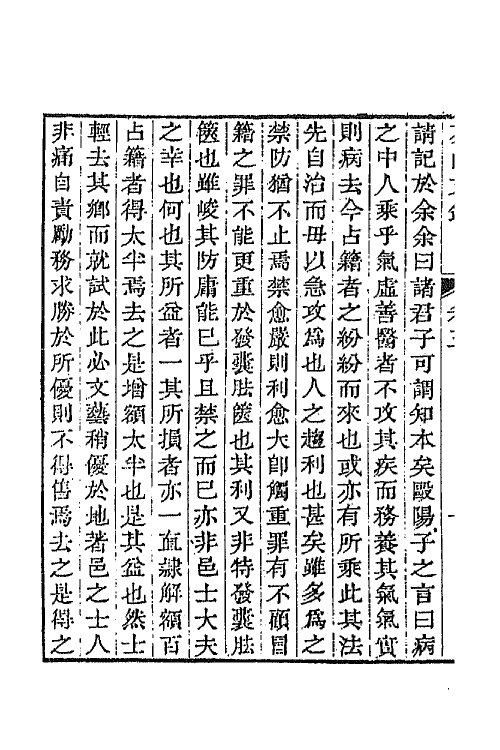 請記於余余曰諸君子可謂知本矣歐陽子之言曰病
之中人乘乎氣虛善醫者不攻其疾而務養其氣氣實
則病去今占籍者之紛紛而來也或亦有所乘此其法
先自治而毋以急攻為也人之趨利也甚矣雖多為之
禁防猶不止焉禁愈嚴則利愈大卽觸重罪有不顧冒
籍之罪不能更重於發䕫胠篋也其利又非特發䕫胠
篋也雖峻其防庸能已乎且禁之而已亦非邑士大夫
之幸也何也其所益者一其所損者亦一直隸解額百
占籍者得太半焉去之是增額太半也是其益也然士
輕去其鄉而就試於此必文藝稍優於地著邑之士人
非痛自責勵務求勝於所優則不得售焉去之是得之